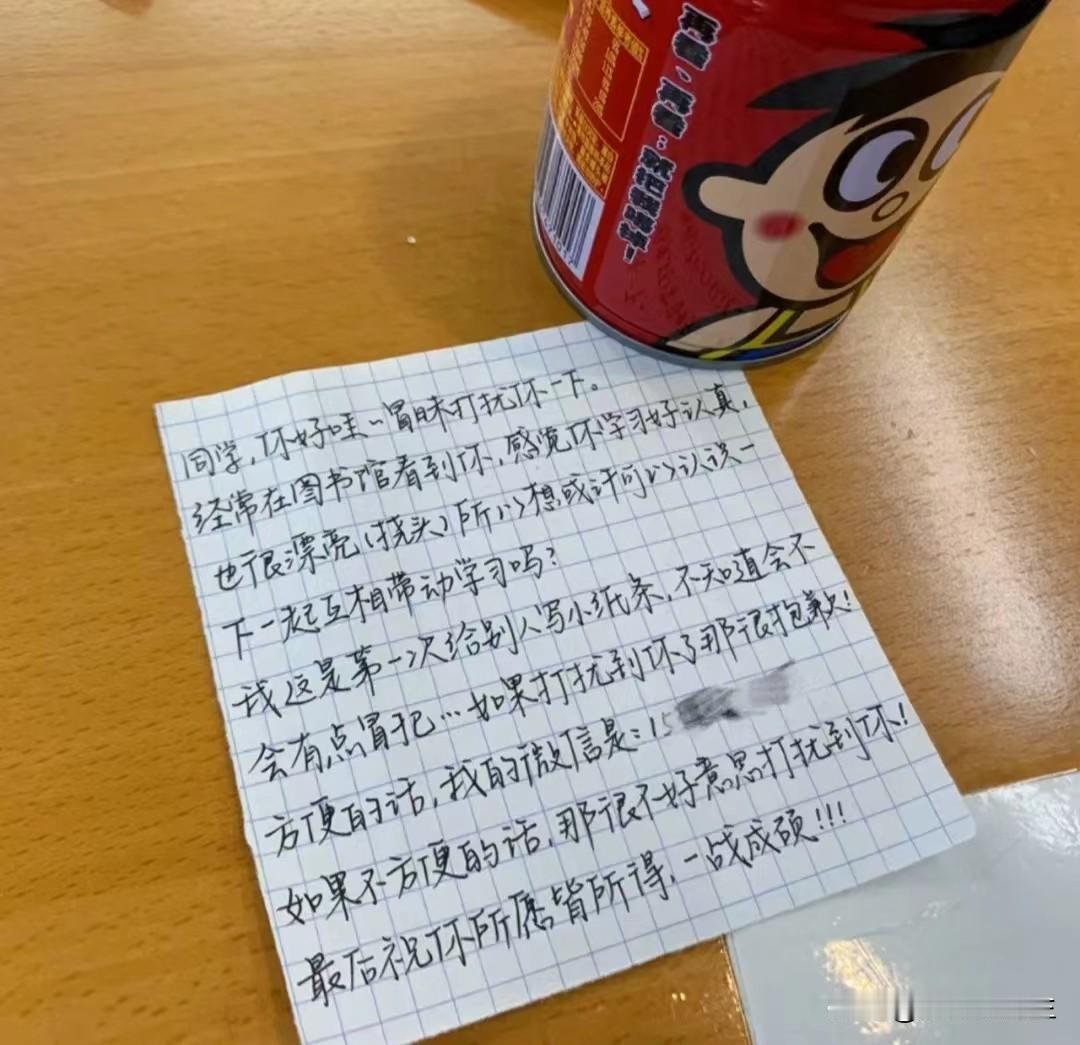 再看、再看：就把你喝掉！
同学，你好哇~冒昧打扰你一下。
经常在图书馆看到你，感觉你学习好认真，
也很漂亮（挠头）所以想或许可以认识一
下一起互相带动学习吗？
我这是第一次给别人写小纸条，不知道会不
会有点冒犯…如果打扰到你了那很抱歉！
方便的话，我的微信是：15
如果不方便的话，那很不好意思打扰到你！
最后祝你所愿皆所得，一战成硕!!!